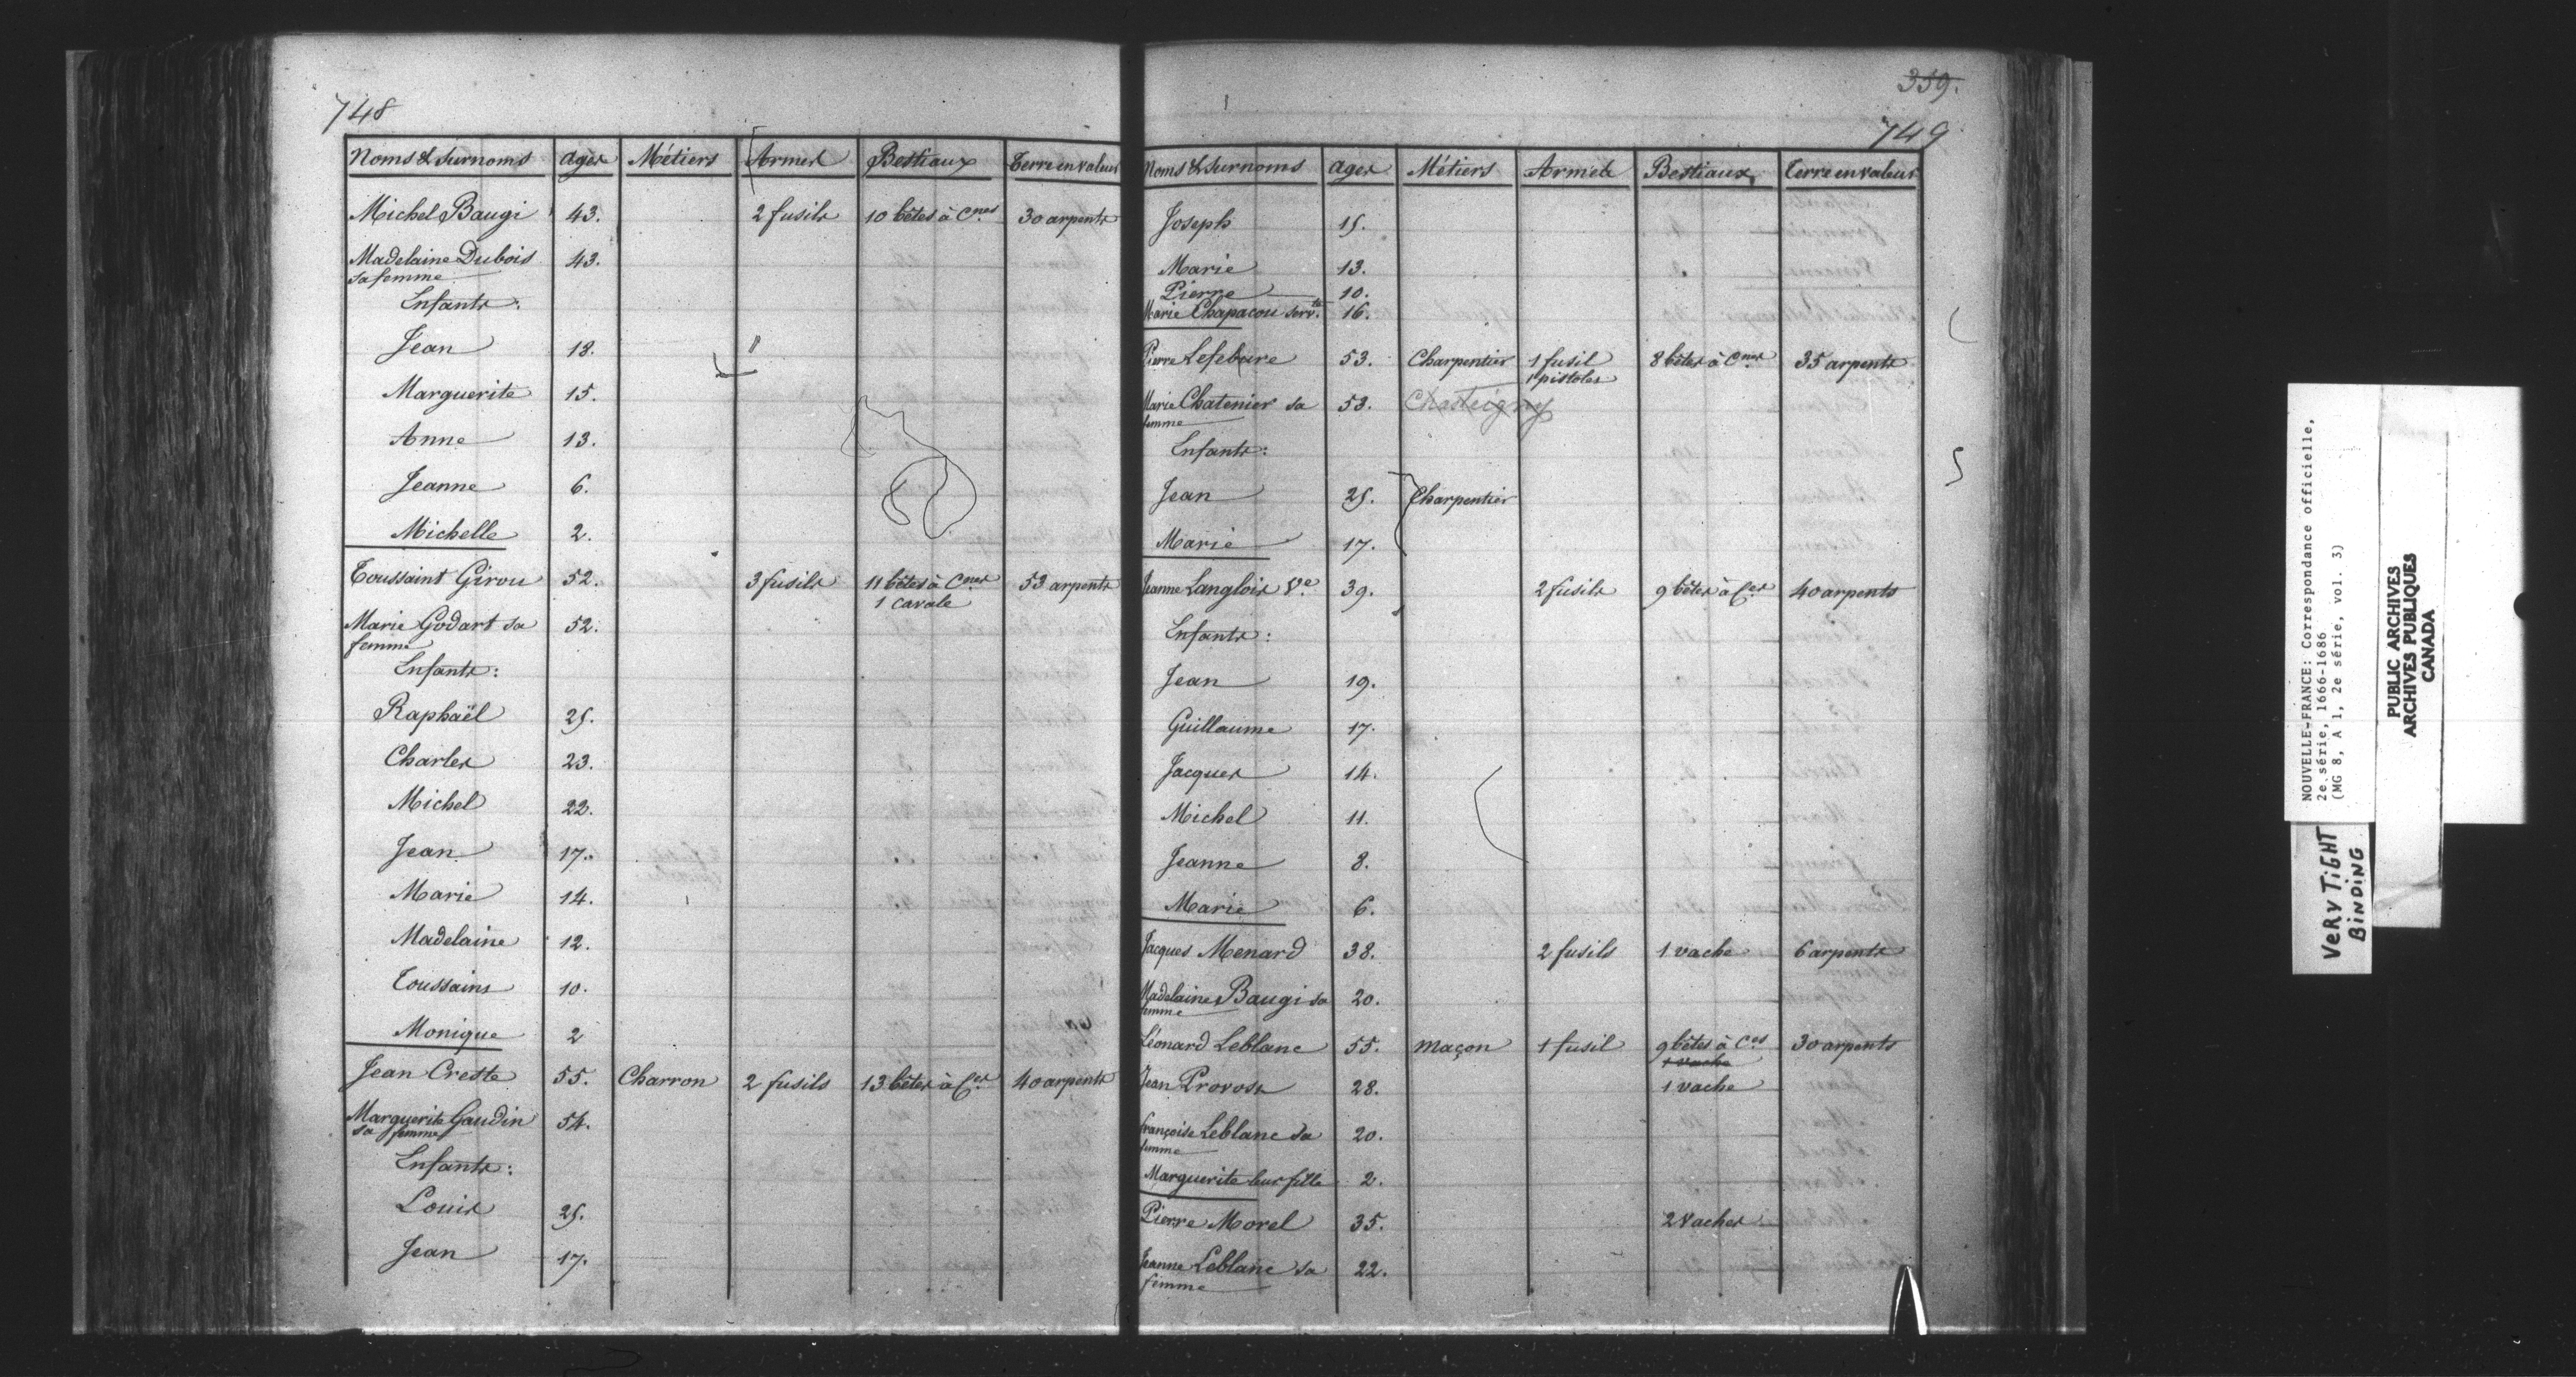 748
Noms & Surnoms Ages Métiers Armes Bestiaux Terre en valeur
Michel Baugi 43. 2 fusils 10 bêtes à Cnes 30 arpents
Madelaine Dubois 43.
sa femme
Enfants:
Jean 18.
Marguerite 15.
Anne 13.
Jeanne 6.
Michelle 2.
Toussaint Girou 52. 3 fusils 11 bêtes à Cnes 53 arpents
1 cavale
Marie Godart sa 52.
femme
Enfants:
Raphaël 25.
Charles 23.
Michel 22.
Jean 17.
Marie 14.
Madelaine 12.
Toussains 10.
Monique 2
Jean Creste 55. Charron 2 fusils 13 bêtes à Ces 40 arpents
Marguerite Gaudin 54.
sa femme
Enfants:
Louis 25.
Jean 17.
359.
749
Noms & Surnoms Ages Métiers Armes Bestiaux Terre en valeur
Joseph 15.
Marie 13.
Pierre 10.
Marie Chapacou servte. 16.
Pierre Lefebure 53. Charpentier 1 fusil 8 bêtes à Cnes 35 arpents
1 pistoles
Marie Chatenier sa 53. Chasteigny
femme
Enfants:
Jean 25. Charpentier
Marie 17.
Jeanne Langlois Ve 39. 2 fusils 9 bêtes à Ces 40 arpents
Enfants:
Jean 19.
Guillaume 17.
Jacques 14.
Michel 11.
Jeanne 8.
Marie 6.
Jacques Menard 38. 2 fusils 1 vache 6 arpents
Madelaine Baugi sa 20.
femme
Léonard Leblanc 55. Maçon 1 fusil 9 bêtes à Ces 30 arpents
1 vache
Jean Provost 28. 1 vache
Françoise Leblanc sa 20.
femme
Marguerite leur fille 2.
Pierre Morel 35. 2 Vaches
Jeanne Leblanc sa 22.
femme
NOUVELLE-FRANCE: Correspondance officielle,
2e série, 1666-1686
(MG 8, A 1, 2e série, vol. 3)
PUBLIC ARCHIVES
ARCHIVES PUBLIQUES
CANADA
VERY TIGHT
BINDING